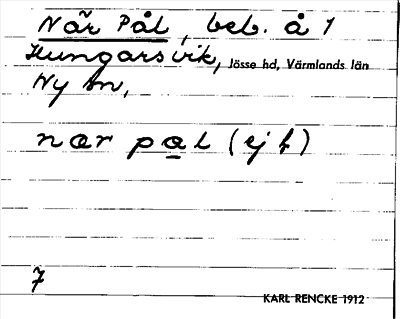 När Pål, beb. å 1
Kungarsvik, Jösse hd, Värmlands län
Ny sn,
nar pal (ej f)
7
KARL RENCKE 1912